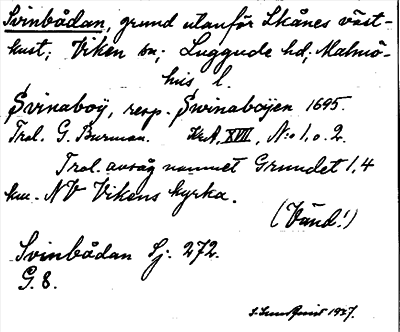 Svinbådan, grund utanför Skånes väst-
kust; Viken sn; Luggude hd; Malmö-
hus l.
Svinaboy, resp. Swinabojen 1695.
Trol. G. Burman. KrA, XVII, No 1, o. 2.
Trol. avsåg namnet Grundet 1,4
km. NV Vikens kyrka.
(Vänd!)
Svinbådan Sj. 272.
G. 8.
S. Sundquist 1927.